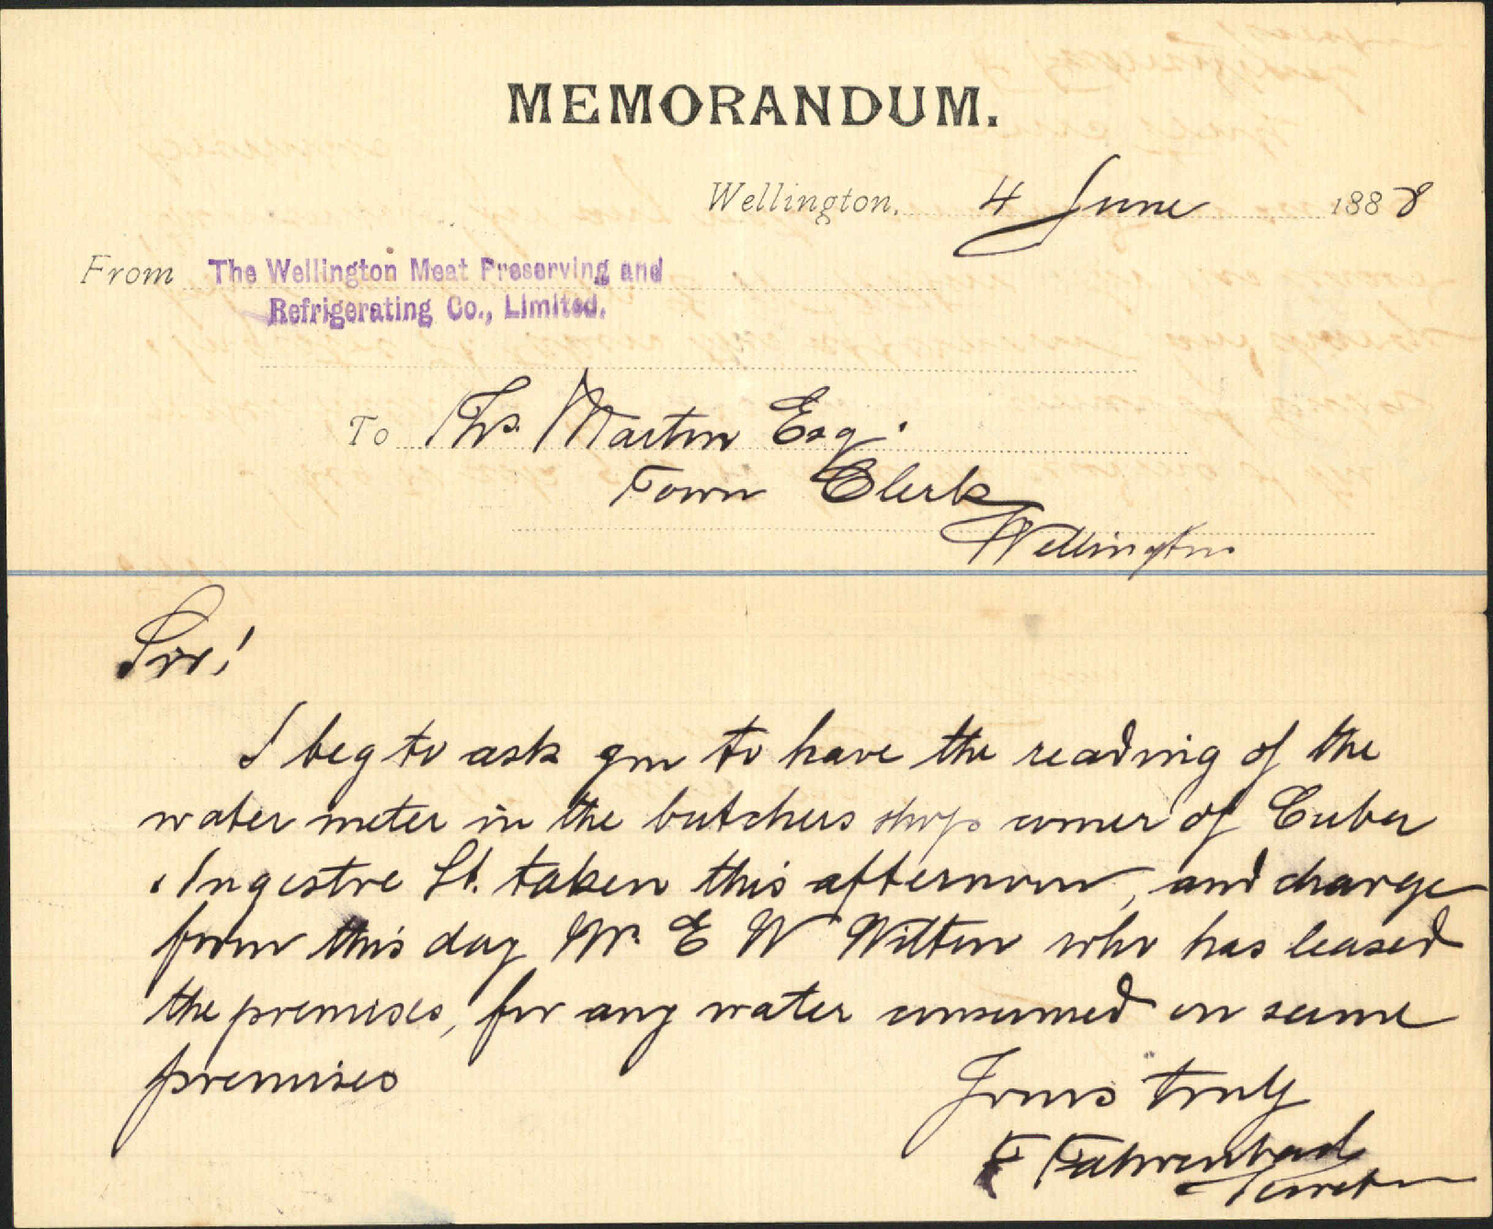 MEMORANDUM.
Wellington, 4 June 1888
From The Wellington Meat Preserving and
Refrigerating Co., Limited.
To Thos. Martin Esq.
Town Clerk
Wellington
Sir!
I beg to ask you to have the reading of the
water meter in the butchers shop corner of Cuba
& Ingestre St. taken this afternoon, and charge
from this day Mr. E W Wilton who has leased
the premises, for any water consumed on same
premises
Yours truly
F Fahrenbach
Secretary